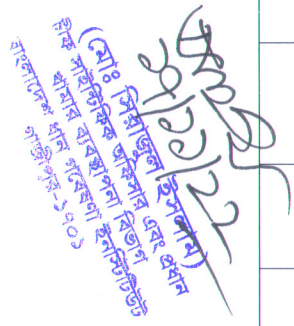 ২০/১১/২২
(মোঃ সিরাজুল ইসলাম)
মুখ্য বৈজ্ঞানিক অফিসার এবং প্রধান
খামার ব্যবস্থাপনা বিভাগ
বাংলাদেশ ধান গবেষণা ইনস্টিটিউট
গাজীপুর-১৭০১